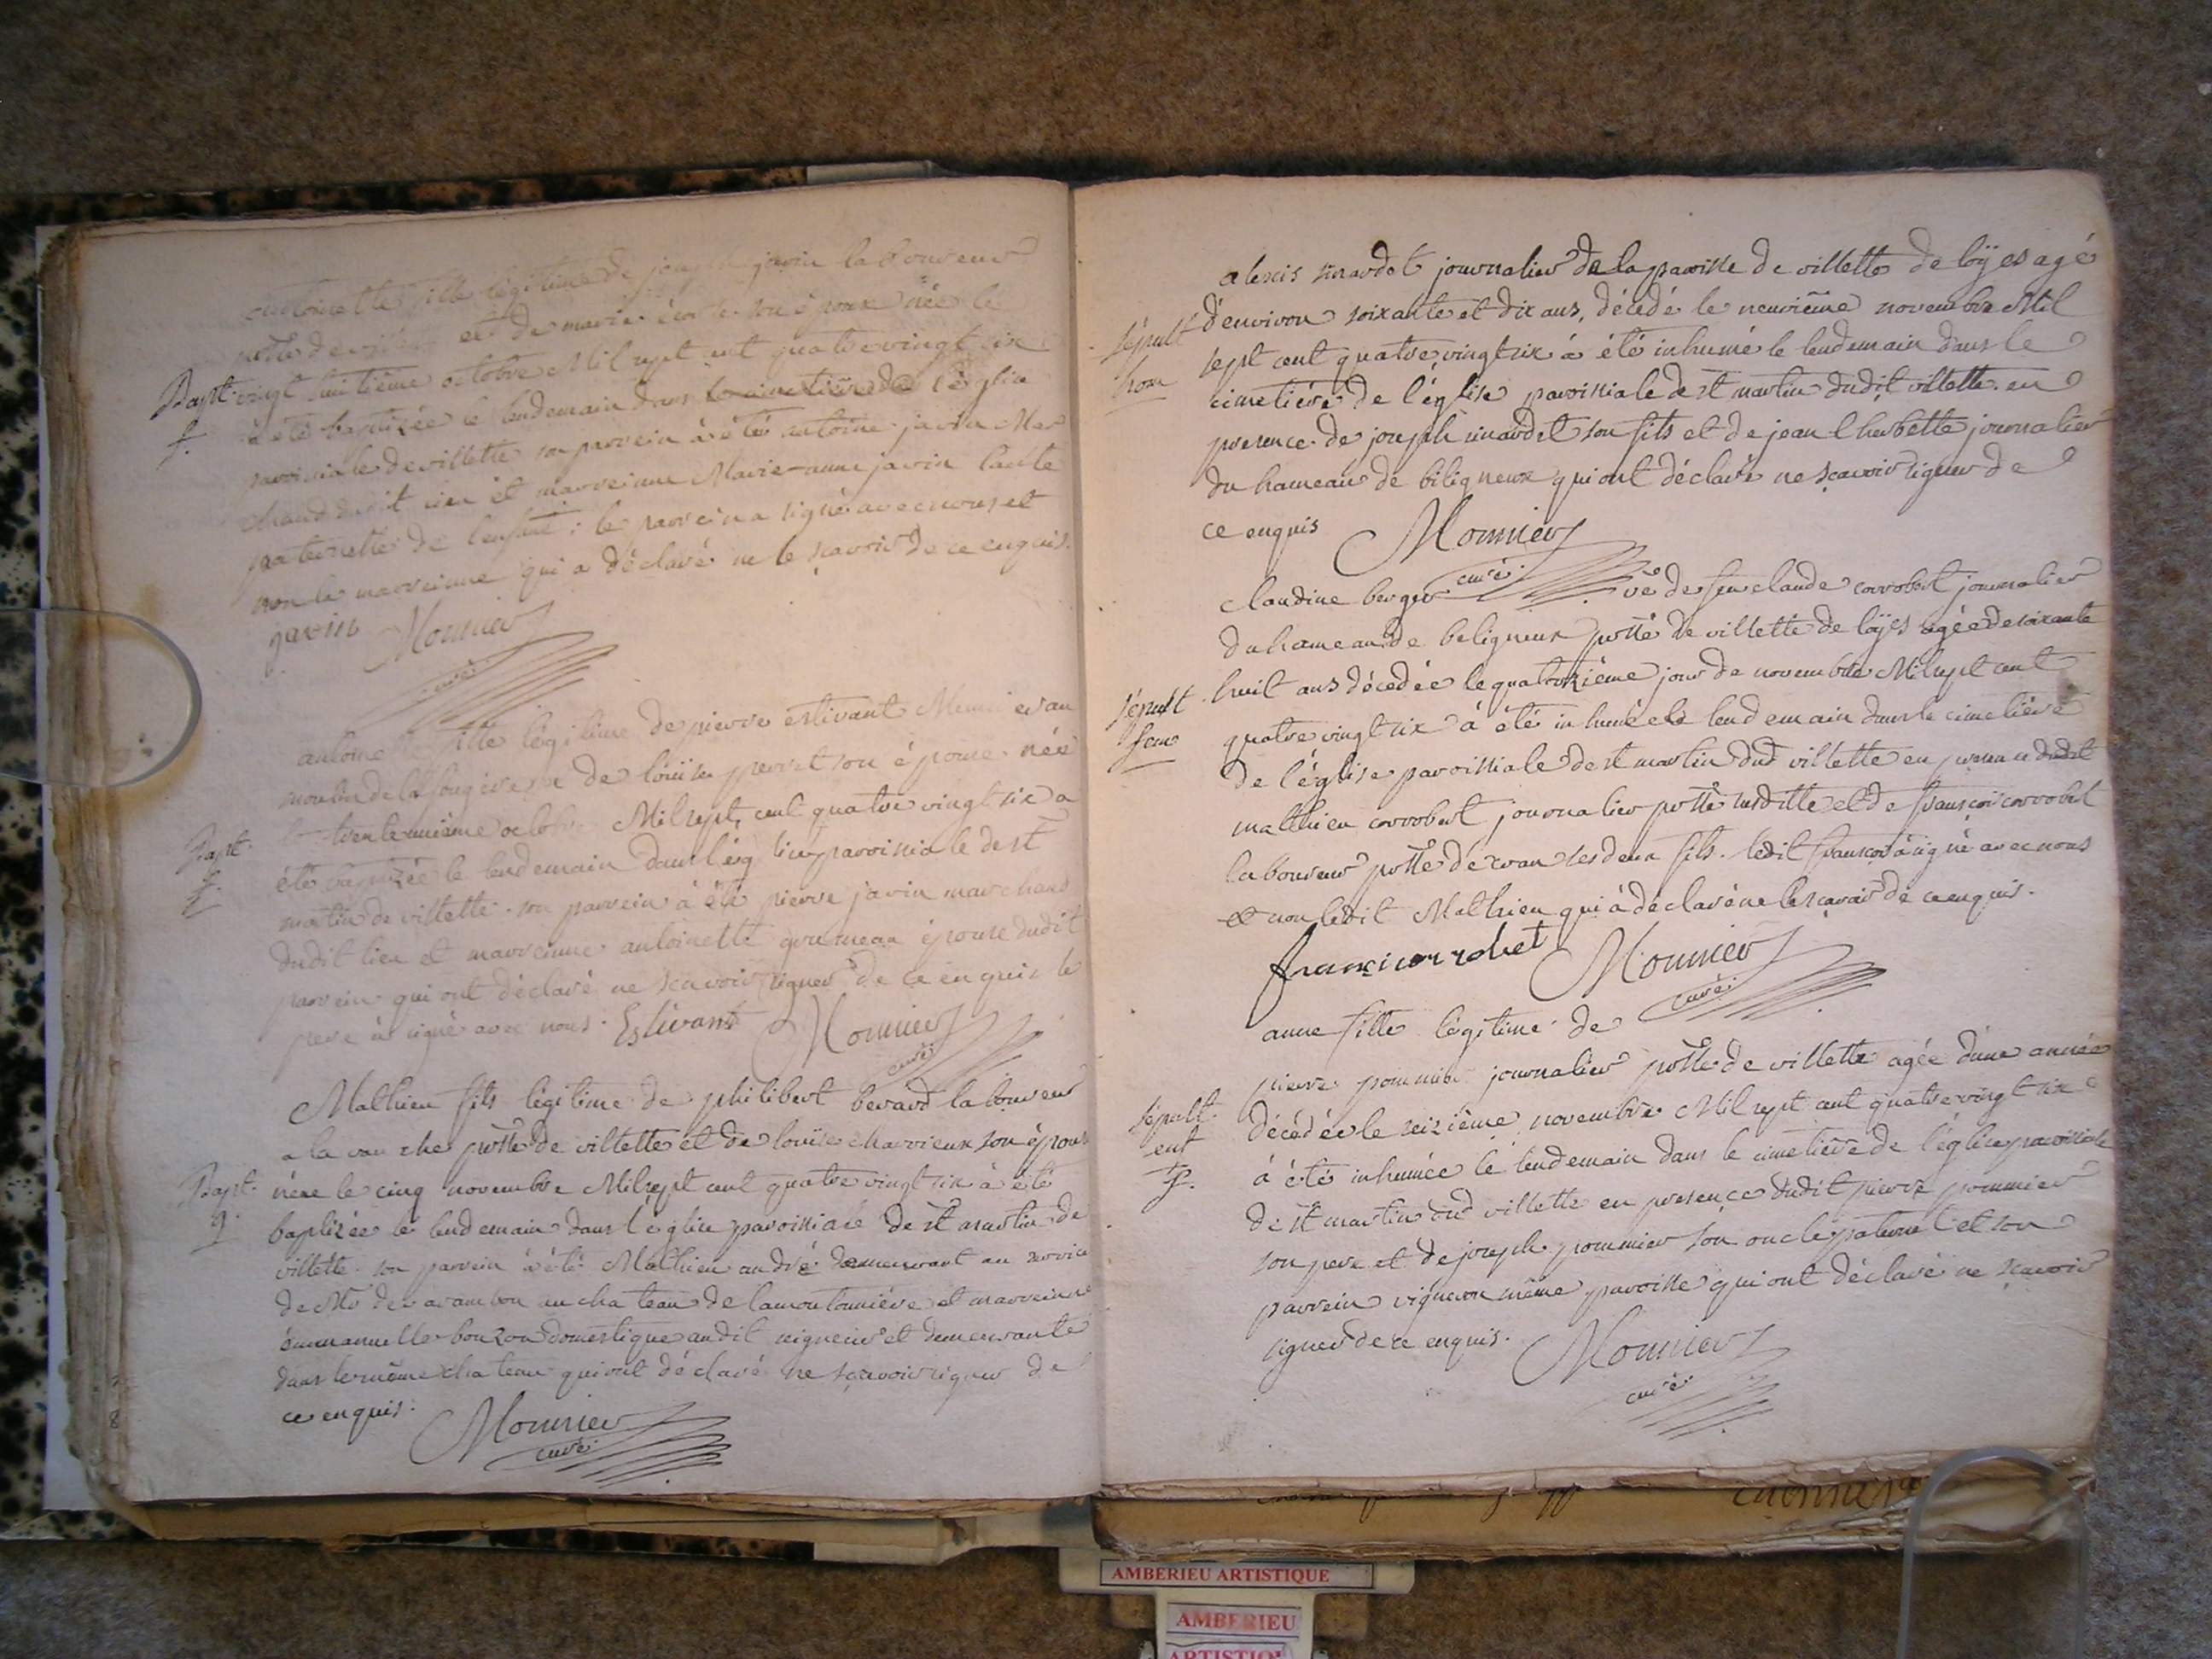 antoinette fille légitime de joseph javin laboureur
et de marie son épouse née le
Bapt. vingt huitième octobre Mil sept cent quatre vingt six
f. à été baptizée le lendemain dans le cimetière de l'église
paroissiale de villette son parrein à été antoine javin Mar
chand dudit lieu et marreinne Marie-anne javin tante
paternelle de l'enfant : le parrein a signé avec nous et
non la marreinne qui a déclaré ne le scavoir de ce enquis.
javin Monnier
curé
fille légitime de pierre estivant Munier au
moulin de la fougere et de louise perret son épouse née
le trente unième octobre Mil sept cent quatre vingt six a
Bapt. f. été baptizée le lendemain dans l'église paroissiale de st
martin de villette. son parrein à été pierre javin marchand
dudit lieu et marreinne antoinette épouse dudit
parrein qui ont déclaré ne scavoir signer de ce enquis le
pere à signé avec nous. Estivant Monnier
curé
Mathieu fils légitime de philibert berard laboureur
a la vauche psse de villette et de louise charvieux son épouse
Bapt. g. néee le cinq novembre Mil sept cent quatre vingt six à été
baptizée le lendemain dans l'église paroissiale de st martin de
villette. son parrein à été Mathieu andré demeurant au service
de Mr de varambon au chateau de lamoutonniére et marreinne
émmanuelle bouzon domestique audit seigneur et demeurante
dans le même chateau qui ont déclaré ne scavoir signer de
ce enquis. Monnier
curé
alexis sinardet journalier de la paroisse de villette de loÿes agé
d'environ soixante et dix ans, décédé le neuvième novembre Mil
sépult hom sept cent quatre vingt six à été inhumé le lendemain dans le
cimetiére de l'église paroissiale de st martin dudit villette en
presence de joseph sinardet son fils et de jean l herbette journalier
du hameau de biligneux qui ont déclaré ne sçavoir signer de
ce enquis Monnier
curé
claudine berger vé de feu claude corrobert journalier
du hameau de beligneux psse de villette de loÿes agée de soixante
sépult. fem huit ans décédée le quatorzième jour de novembre Mil sept cent
quatre vingt six à été inhumée le lendemain dans le cimetiére
de l'église paroissiale de st martin dud villette en presence dudit
mathieu corrobert journalier psse susditte et de françois corrobert
laboureur psse de ses deux fils. ledit françois à signé avec nous
et non ledit Mathieu qui à déclaré ne le sçavoir de ce enquis.
francicorrobet Monnier
curé
anne fille légitime de
pierre pommier journalier psse de villette agée d'une année
sépult. enf f. décédée le seizième novembre Mil sept cent quatre vingt six
à été inhumée le lendemain dans le cimetière de l'église paroissiale
de st martin dud villette en presence dudit pierre pommier
son pere et de joseph pommier son oncle paternel et son
parrein vigneron même paroisse qui ont déclaré ne sçavoir
signer de ce enquis. Monnier
curé
AMBERIEU ARTISTIQUE
AMBERIEU
ARTISTIQUE